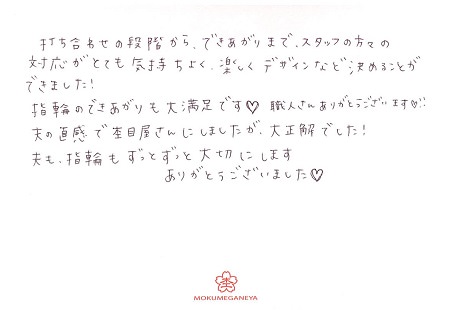 打ち合わせの段階から、できあがりまで、スタッフの方々の
対応がとても気持ちよく、楽しくデザインなど決めることが
できました！
指輪のできあがりも大満足です♡ 職人さんありがとうございます♡!!
夫の直感で杢目屋さんにしましたが、大正解でした！
夫も、指輪もずっとずっと大切にします
ありがとうございました♡
杢
MOKUMEGANEYA